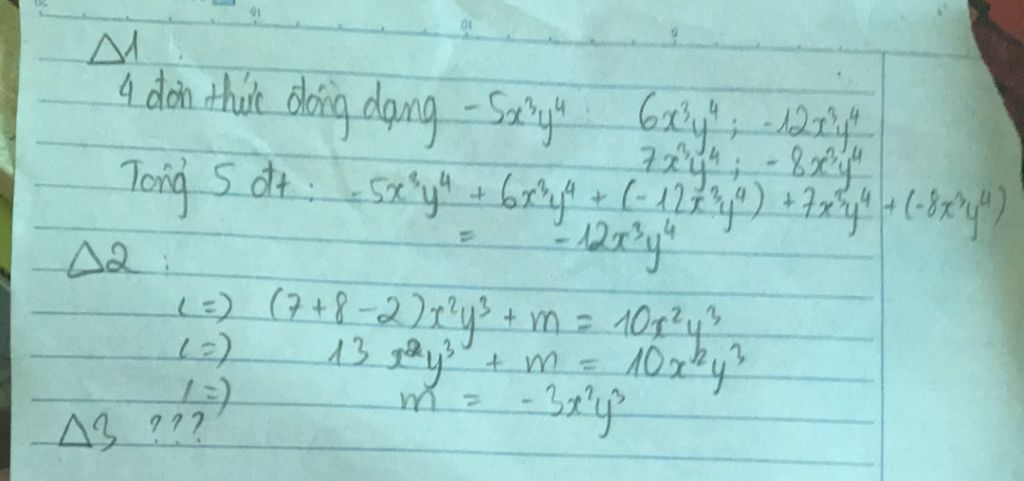 Δ1
4 đơn thức đồng dạng -5x³y⁴ : 6x³y⁴ ; -12x³y⁴
7x³y⁴ ; -8x³y⁴
Tổng 5 đt : -5x³y⁴ + 6x³y⁴ + (-12x³y⁴) + 7x³y⁴ + (-8x³y⁴)
= -12x³y⁴
Δ2 :
(=) (7+8-2)x²y³ + m = 10x²y³
(=) 13 x²y³ + m = 10x²y³
(=) m = -3x²y³
Δ3 ???